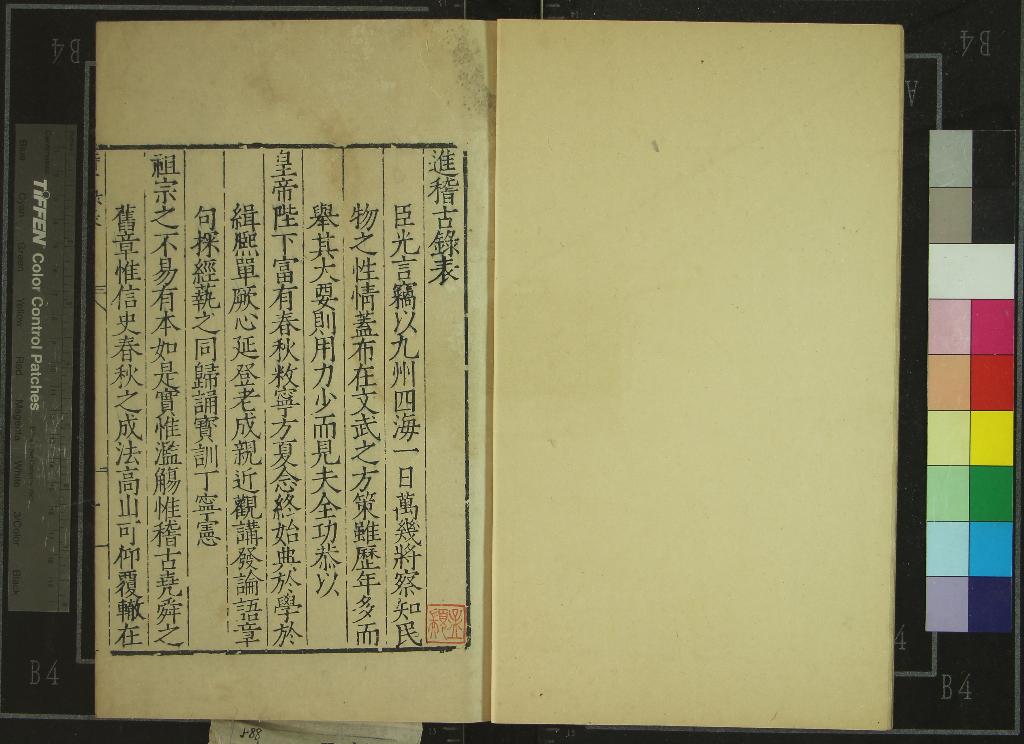 進稽古錄表
臣光言竊以九州四海一日萬幾將察知民
物之性情蓋布在文武之方策雖歷年多而
舉其大要則用力少而見夫全功恭以
皇帝陛下富有春秋敉寧方夏念終始典於學於
緝熈單厥心延登老成親近觀講發論語章
句探經蓺之同歸誦寶訓丁寧憲
祖宗之不易有本如是實惟濫觴惟稽古堯舜之
舊章惟信史春秋之成法高山可仰覆轍在
TIFFEN Color Control Patches
Blue
Cyan
Green
Yellow
Red
Magenta
White
3/Color
Black
B4
B4
B4
B4
A
4